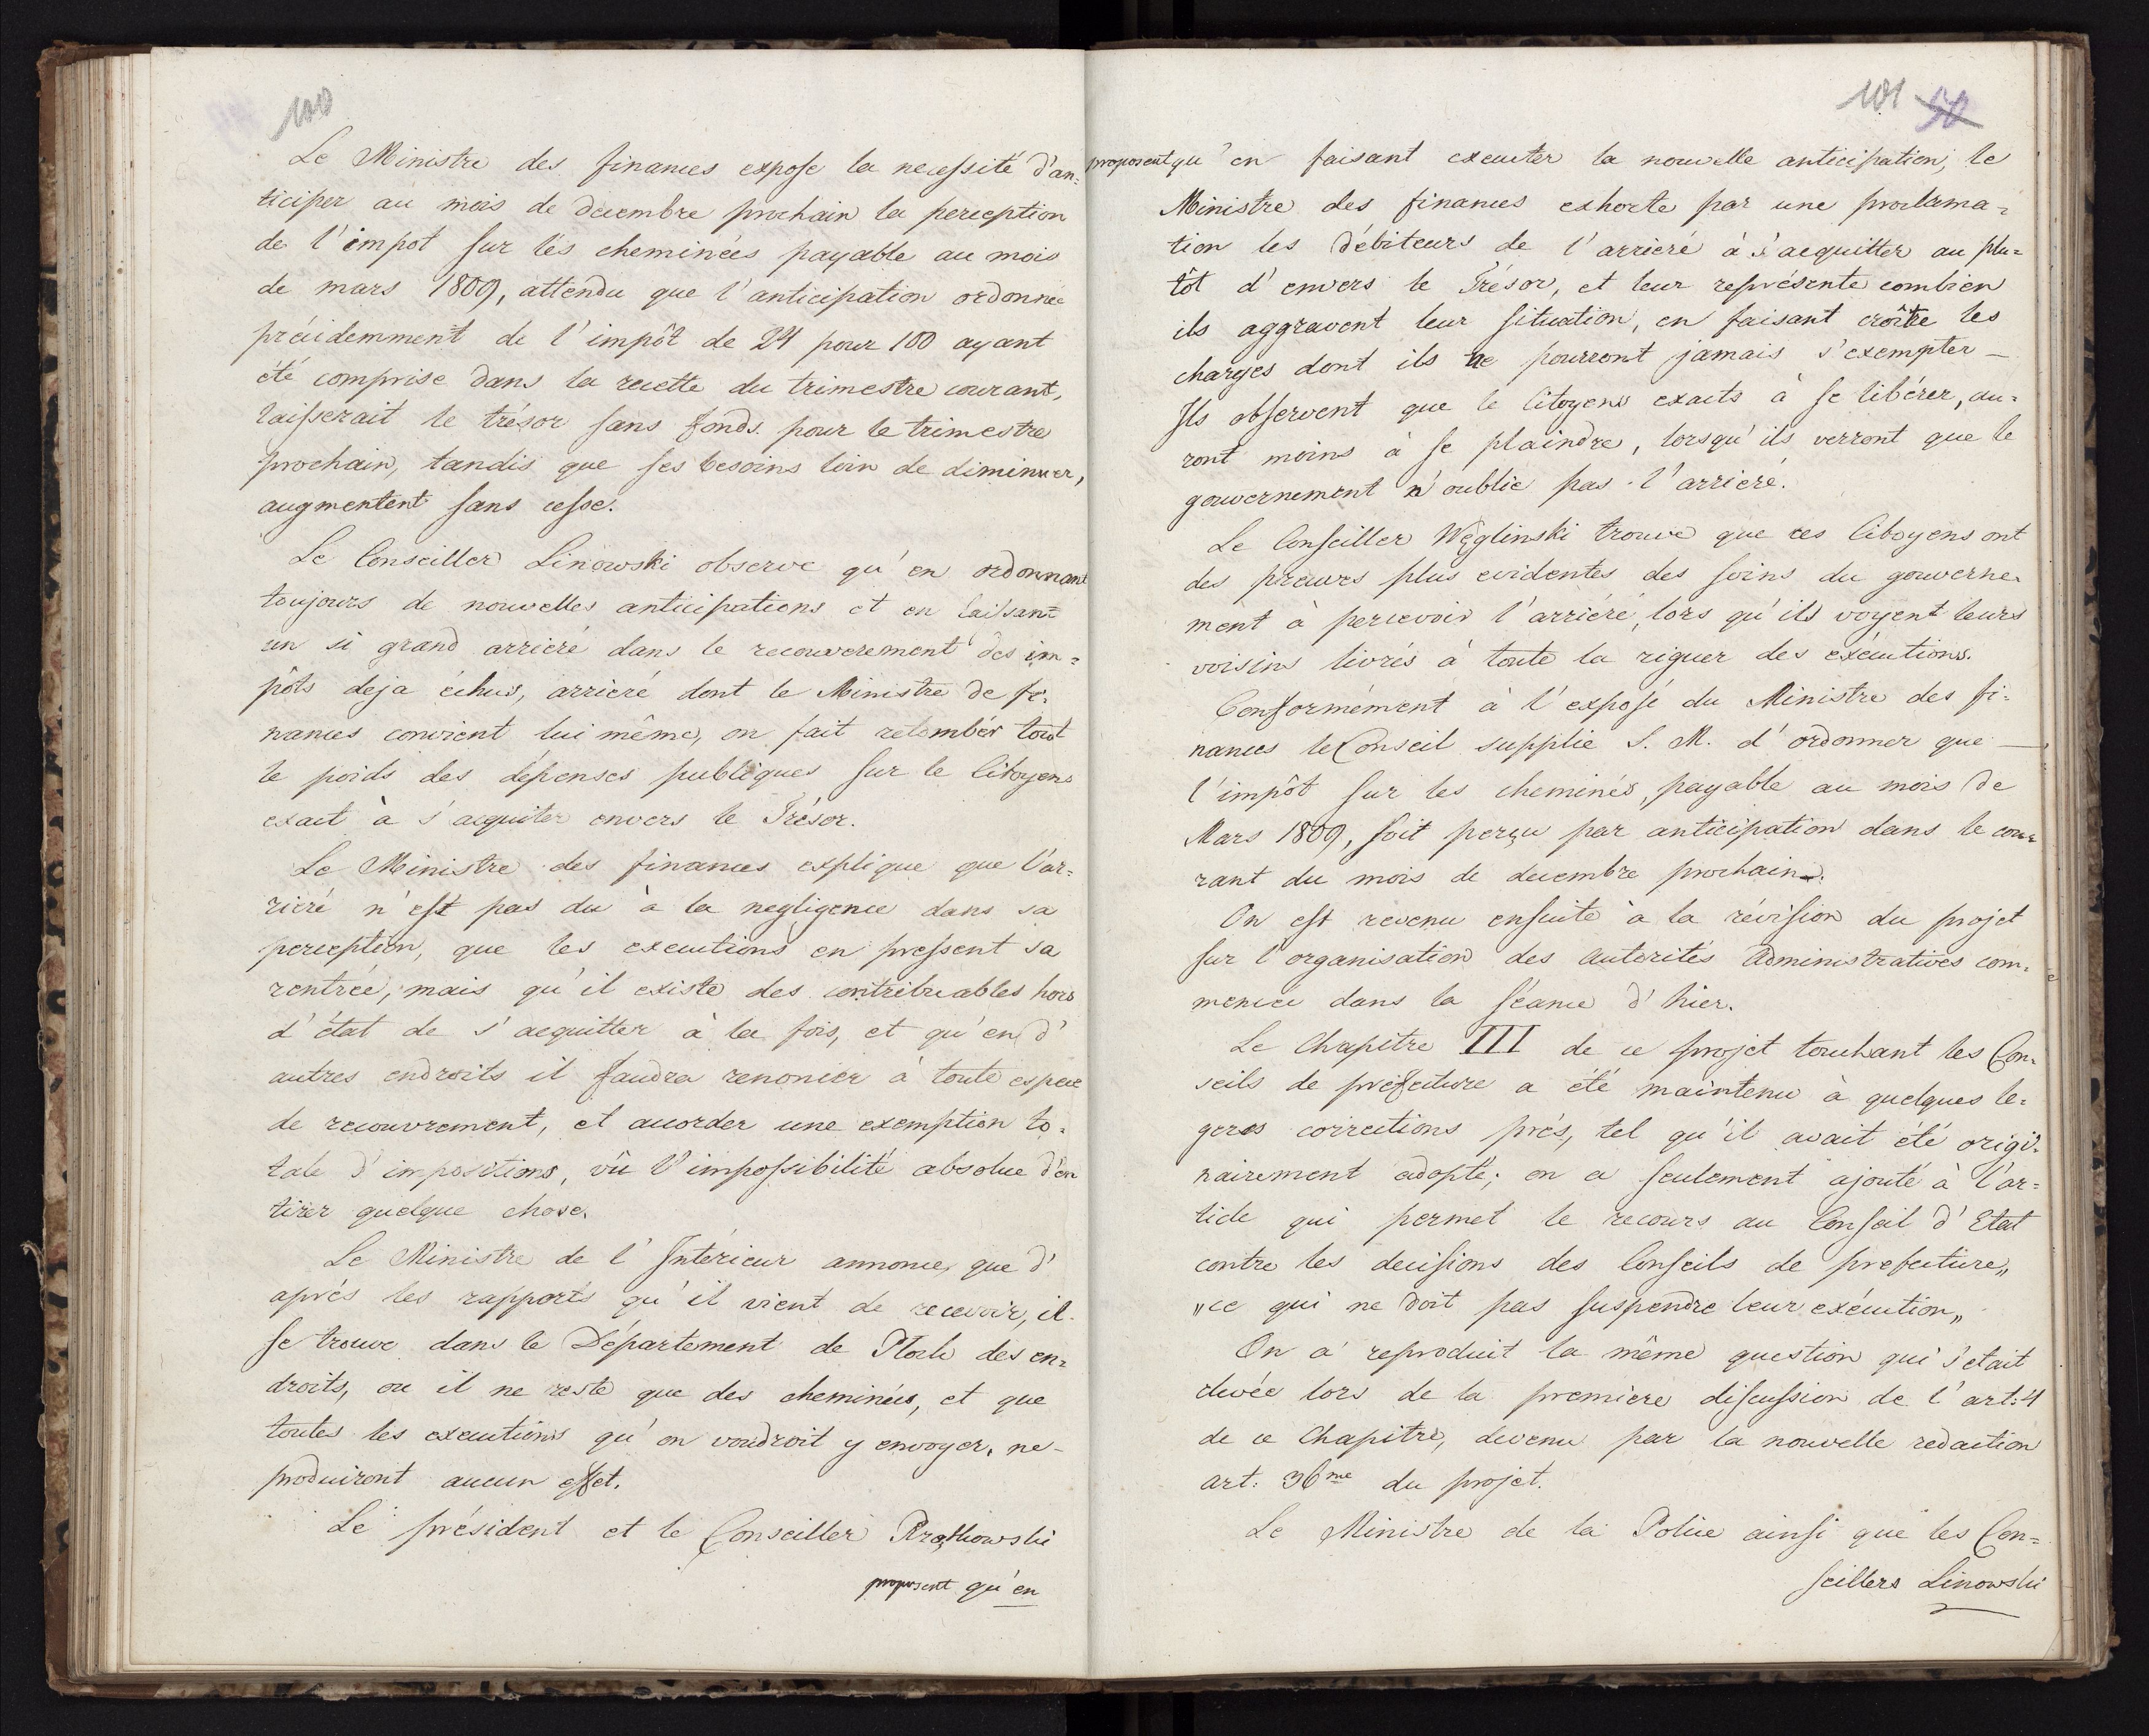 100
Le Ministre des finances expose la necessité d'an=
ticiper au mois de decembre prochain la perception
de l'impot sur les cheminées payable au mois
de mars 1809, attendu que l'anticipation ordonnée
précidemment de l'impôt de 24 pour 100 ayant
été comprise dans la recette du trimestre courant,
laisserait le trésor sans fonds pour le trimestre
prochain, tandis que ses besoins loin de diminuer,
augmentent sans cesse.
Le Conseiller Linowski observe qu'en ordonnant
toujours de nouvelles anticipations et en laissant
un si grand arrieré dans le recouvrement des im=
pôts deja échus, arrieré dont le Ministre de fi=
nances convient lui même, on fait retomber tout
le poids des dépenses publiques sur le Citoyens
exact à s'acquiter envers le Trésor.
Le Ministre des finances explique que l'ar=
rieré n'est pas du à la negligence dans sa
perception, que les executions en pressent sa
rentrée, mais qu'il existe des contribuables hors
d'état de s'acquitter à la fois, et qu'en d'
autres endroits il faudra renoncer à toute espece
de recouvrement, et accorder une exemption to=
tale d'impositions, vû l'impossibilité absolue d'en
tirer quelque chose.
Le Ministre de l'Intérieur annonce, que d'
aprés les rapports qu'il vient de recevoir, il
se trouve dans le Département de Plock des en=
droits, ou il ne reste que des cheminées, et que
toutes les executions qu'on voudroit y envoyer, ne
produiront aucun effet.
Le président et le Conseiller
proposent qu'en
101 50
proposent qu'en faisant executer la nouvelle anticipation, le
Ministre des finances exhorte par une proclama=
tion les débiteurs de l'arrieré à s'acquitter au plu=
tôt d'envers le Trésor, et leur représente combien
ils aggravent leur situation, en faisant croître les
charges dont ils ne pourront jamais s'exempter —
Ils observent que le Citoyens exacts à se libérer, au=
ront moins à se plaindre, lorsqu'ils verront que le
gouvernement n'oublie pas l'arrieré.
Le Conseiller Węglinski trouve que ces Citoyens ont
des preuves plus evidentes des soins du gouverne=
ment à percevoir l'arriéré, lors qu'ils voyent leurs
voisins livrés à toute la riguer des exécutions.
Conformément à l'exposé du Ministre des fi=
nances le Conseil supplie S. M. d'ordonner que —
l'impôt sur les cheminés, payable au mois de
Mars 1809, soit perçu par anticipation dans le cou=
rant du mois de decembre prochain.
On est revenu ensuite à la révision du projet
sur l'organisation des autorités administratives com=
mencée dans la séance d'hier.
Le Chapitre III de ce projet touchant les Con=
seils de préfecture a été maintenu à quelques le=
geres corrections prés, tel qu'il avait été origi=
nairement adopté; on a seulement ajouté à l'ar=
ticle qui permet le recours au Conseil d'Etat
contre les decisions des Conseils de prefecture,,
,,ce qui ne doit pas suspendre leur exécution,,
On a reproduit la même question qui s'etait
elevée lors de la premiere discussion de l'art: 4
de ce Chapitre, devenu par la nouvelle redaction
art: 36me du projet.
Le Ministre de la Police ainsi que les Con=
seillers Linowski